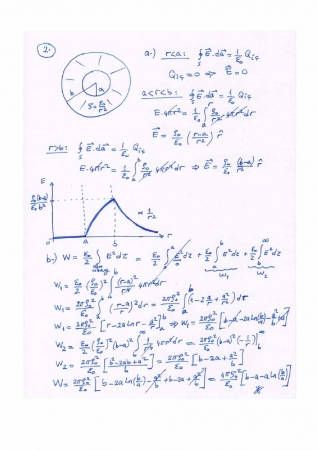 2.
a-) r<a: ∮_S E⃗.da⃗ = 1/ε₀ Q_iç
Q_iç = 0 ⇒ E⃗ = 0
a<r<b: ∮_S E⃗.da⃗ = 1/ε₀ Q_iç
a
b
ρ = ρ₀/r²
E.4πr² = 1/ε₀ ∫_a^r ρ₀/r² 4πr² dr
E⃗ = ρ₀/ε₀ (r-a)/r² r̂
r>b: ∮_S E⃗.da⃗ = 1/ε₀ Q_iç
E.4πr² = 1/ε₀ ∫_a^b ρ₀/r² 4πr² dr ⇒ E⃗ = ρ₀/ε₀ (b-a)/r² r̂
E
ρ₀(b-a)/ε₀b²
∝ 1/r²
a b r
b-) W = ε₀/2 ∫ E² dτ = ε₀/2 ∫ E² dτ + ε₀/2 ∫_a^b E² dτ + ε₀/2 ∫_b^∞ E² dτ
W₁ W₂
W₁ = ε₀/2 (ρ₀/ε₀)² ∫_a^b (r-a)²/r⁴ 4πr² dr
W₁ = 2πρ₀²/ε₀ ∫_a^b (r-a)²/r² dr = 2πρ₀²/ε₀ ∫_a^b (1 - 2a/r + a²/r²) dr
W₁ = 2πρ₀²/ε₀ [r - 2a ln r - a²/r]_a^b ⇒ W₁ = 2πρ₀²/ε₀ [b - a - 2a ln(b/a) - a²/b + a]
W₂ = ε₀/2 (ρ₀/ε₀)² (b-a)² ∫_b^∞ 1/r⁴ 4πr² dr = 2πρ₀²/ε₀ (b-a)² (-1/r)|_b^∞
W₂ = 2πρ₀²/ε₀ [b² - 2ab + a²/b] = 2πρ₀²/ε₀ [b - 2a + a²/b]
W = 2πρ₀²/ε₀ [b - 2a ln(b/a) - a²/b + b - 2a + a²/b] = 4πρ₀²/ε₀ [b - a - a ln(b/a)]